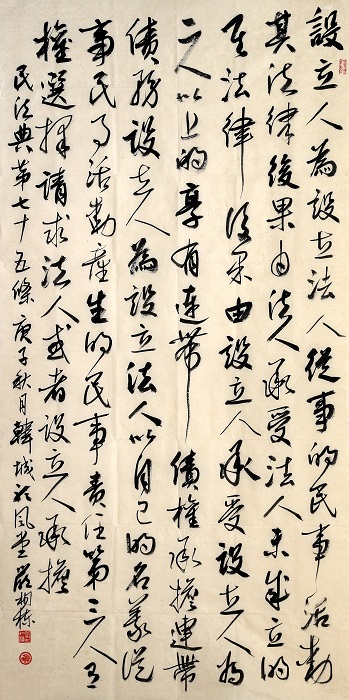 設立人為設立法人從事的民事活動
其法律後果由法人承受法人未成立的
其法律後果由設立人承受設立人為
二人以上的享有連帶債權承擔連帶
債務設立人為設立法人以自己的名義從
事民事活動產生的民事責任第三人有
權選擇請求法人或者設立人承擔
民法典第七十五條庚子秋月韓城